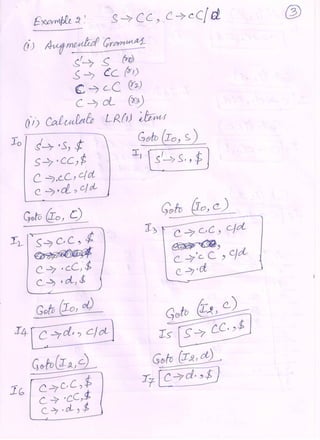 ③
Example 2: S→CC, C→cC/d
(i) Augmented Grammar
S'→ S (r0)
S→ CC (r1)
C→cC (r2)
C→d (r3)
(ii) Calculate LR(1) items
I0
S'→·S, $
S→·CC, $
C→·cC, c/d
C→·d, c/d
Goto (I0, S)
I1 S'→S·, $
Goto (I0, C)
I2 S→C·C, $
C→·cC, $
C→·d, $
Goto (I0, c)
I3 C→c·C, c/d
C→·c C, c/d
C→·d
Goto (I0, d)
I4 C→d·, c/d
Goto (I2, C)
I5 S→ CC·, $
Goto (I2, c)
I6 C→c·C, $
C→·cC, $
C→·d, $
Goto (I2, d)
I7 C→d·, $